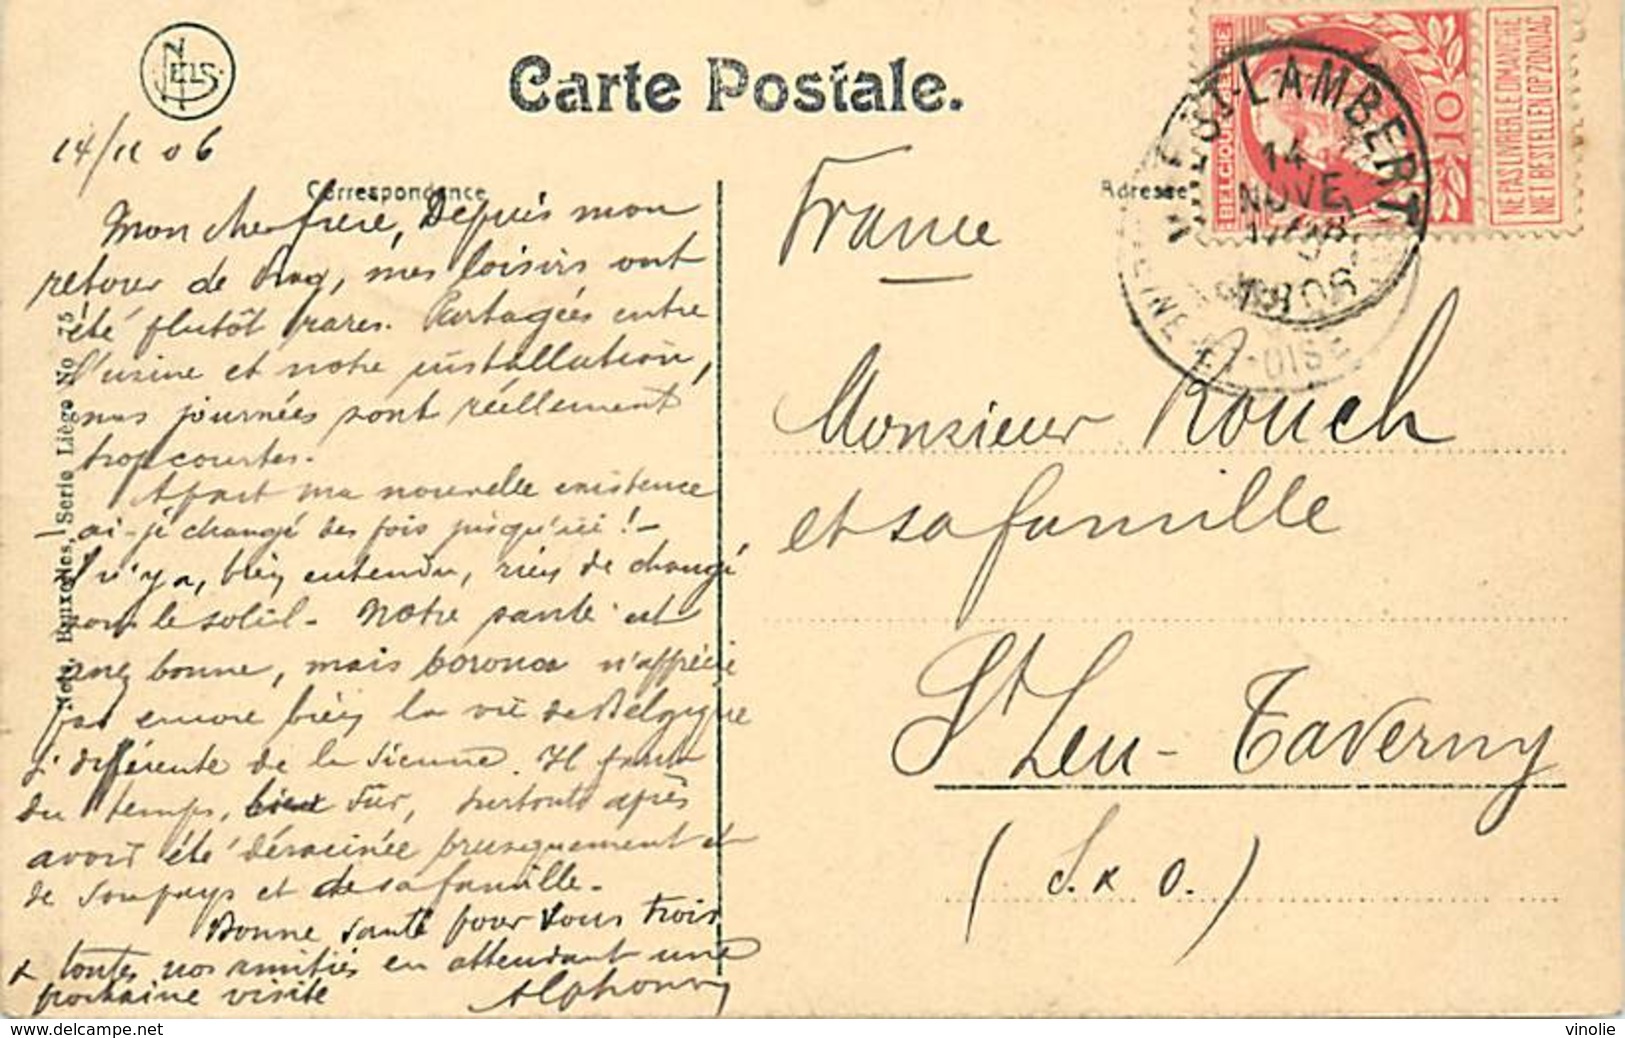 NELS
Carte Postale.
14/11 06
Correspondance
Adresse
Mon cher frère, Depuis mon
retour de, mes loisirs ont
été plutôt rares. Partagées entre
l'usine et notre installation,
nos journées sont réellement
trop courtes.
Apart ma nouvelle existence
ai-je changé des fois jusqu'ici ! -
Il n'y a, bien entendu, rien de changé
sous le soleil - Notre santé est
bonne, mais n'apprécie
pas encore bien la vie de Belgique
si différente de la sienne. Il faut
du temps, bien sûr, surtout après
avoir été déracinée brusquement et
de son pays et de sa famille -
Bonne santé pour vous trois
& toutes nos amitiés en attendant une
prochaine visite
Nels, Bruxelles, Serie Liége No 75
France
Monsieur Rouch
et sa famille
St Leu - Taverny
(S. & O.)
BELGIQUE
10
NE PAS LIVRER LE DIMANCHE
NIET BESTELLEN OP ZONDAG
ST-LAMBERT
14
NOVE
OISE
delcampe.net
vinolie